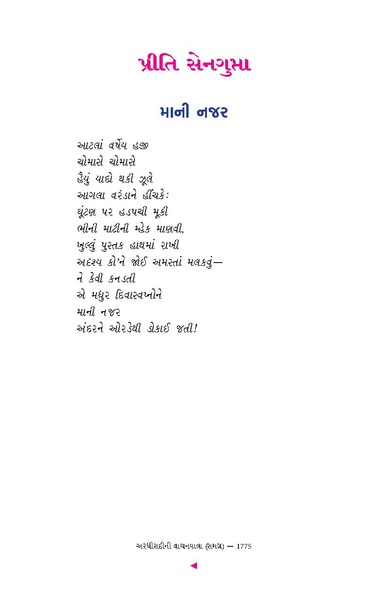 પ્રીતિ સેનગુપ્તા
માની નજર
આટલાં વર્ષેય હજી
ચોમાસે ચોમાસે
હૈયું યાદો થકી ઝૂલે
આગલા વરંડાને હીંચકેઃ
ઘૂંટણ પર હડપચી મૂકી
ભીની માટીની મ્હેક માણવી,
ખુલ્લું પુસ્તક હાથમાં રાખી
અદૃશ્ય કો'ને જોઈ અમસ્તાં મલકવું—
ને કેવી કનડતી
એ મધુર દિવાસ્વપ્નોને
માની નજર
અંદરને ઓરડેથી ડોકાઈ જતી!
અરધીસદીની વાચનયાત્રા (સમગ્ર) — 1775